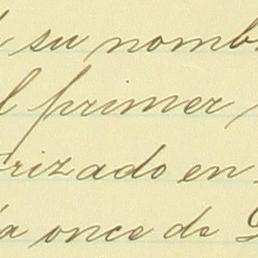 su nomb
l primer
rizado en
ía once de